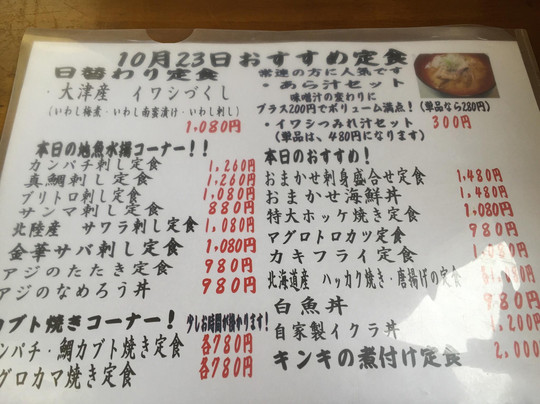 10月23日おすすめ定食
日替わり定食
・大津産 イワシづくし
(いわし梅煮・いわし南蛮漬け・いわし刺し)
1,080円
本日の地魚水揚コーナー!!
カンパチ刺し定食 1,260円
真鯛刺し定食 1,260円
ブリトロ刺し定食 1,080円
サンマ刺し定食 880円
北陸産 サワラ刺し定食 1,080円
金華サバ刺し定食 1,080円
アジのたたき定食 980円
アジのなめろう丼 980円
カブト焼きコーナー! 少しお時間が掛かります!
ンパチ・鯛カブト焼き定食 各780円
グロカマ焼き定食 各780円
常連の方に人気です
・あら汁セット
味噌汁の変わりに
プラス200円でボリューム満点!(単品なら280円)
・イワシつみれ汁セット 300円
(単品は、480円になります)
本日のおすすめ!
おまかせ刺身盛合せ定食 1,480円
おまかせ海鮮丼 1,480円
特大ホッケ焼き定食 1,080円
マグロトロカツ定食 980円
カキフライ定食 1,080円
北海道産 ハッカク焼き・唐揚げの定食
白魚丼 980円
自家製イクラ丼 1,200円
キンキの煮付け定食 2,000